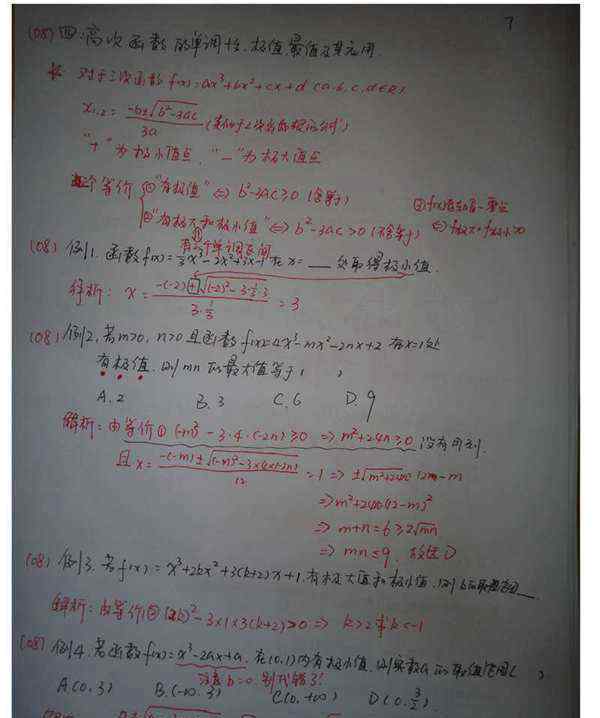 7
(08) 四.高次函数的单调性.极值.最值及其应用
长: 对于三次函数 f(x)=ax³+bx²+cx+d (a.b,c,d∈R)
x₁,₂ = (-b±√(b²-3ac))/3a
"+"为极小值点, "-"为极大值点
个等价 ①"有极值" ⇔ b²-3ac≥0 (含等)
②"有极大和极小值" ⇔ b²-3ac>0 (不含等)
①有三个单调区间
(08) 例1. 函数f(x)=⅓x³-2x²+3x-1 在 x= ___ 处取得极小值.
解析: x = (-(-2)+√((-2)²-3·⅓·3))/(3·⅓) = 3
(08) 例2, 若m>0, n>0且函数 f(x)=4x³-mx²-2nx+2 在x=1处
有极值, 则 mn 的最大值等于( )
A. 2 B. 3 C. 6 D. 9
解析: 由等价① (-m)²-3·4·(-2n)≥0 ⇒ m²+24n≥0 没有用到.
且 x = (-(-m)±√((-m)²-3×4×(-2n)))/12 = 1 ⇒ ±√(m²+24n) = 12-m
⇒ m²+24n=(12-m)²
⇒ m+n=6≥2√mn
⇒ mn≤9, 故选D
(08) 例3. 若f(x)=x³+2kx²+3(k+2)x+1, 有极大值和极小值,
解析: 由等价② (2k)²-3×1×3(k+2)>0 ⇒ k>2或k<-1
(08) 例4. 若函数f(x)=x³-2ax+a, 在(0,1)内有极小值, 则实数a的取值范围( )
注意 b=0, 别代错了!
A(0, 3) B. (-∞, 3) C(0, +∞) D(0, 3/2)